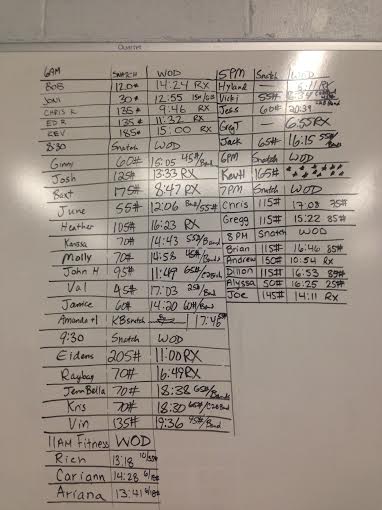 Quartet
6AM SNATCH WOD
BOB 120# 14:24 RX
JONI 30# 12:55
CHRIS R 135# 9:46 RX
ED R 135# 11:32 RX
KEV 185# 15:00 RX
8:30 Snatch WOD
Ginny 60# 15:05 45#/Band
Josh 125# 13:33 RX
Bext 175# 8:47 RX
June 55# 12:06 Band/55#
Heather 105# 16:23 RX
Karissa 70# 14:43 55#/Band
Molly 70# 14:58 45#/Band
John H 95# 11:49 65#
Val 45# 17:03 25#/Band
Janice 60# 14:20 60#/Band
Amanda H KB Snatch 17:46
9:30 Snatch WOD
Eidens 205# 11:00 RX
Raybay 70# 16:49 RX
JennBella 70# 18:38 65#/Bands
Kris 70# 18:30 65#/Band
Vin 135# 19:36 95#/Band
11AM Fitness WOD
Rich 13:18
Cariann 14:28 6/18#
Ariana 13:41 6/18#
5PM Snatch WOD
Hyland RX
Vicki 55#
Jess 60# 20:39
Greg J 6:55 RX
Jack 65# 16:15 55#/Bands
6PM Snatch WOD
KevH 165#
7PM Snatch WOD
Chris 115# 17:08 75#
Gregg 115# 15:22 85#
8PM Snatch WOD
Brian 115# 16:46 85#
Andrew 130# 10:54 RX
Dillon 115# 16:53 85#
Alyssa 50# 16:25 25#
Joe 145# 14:11 RX